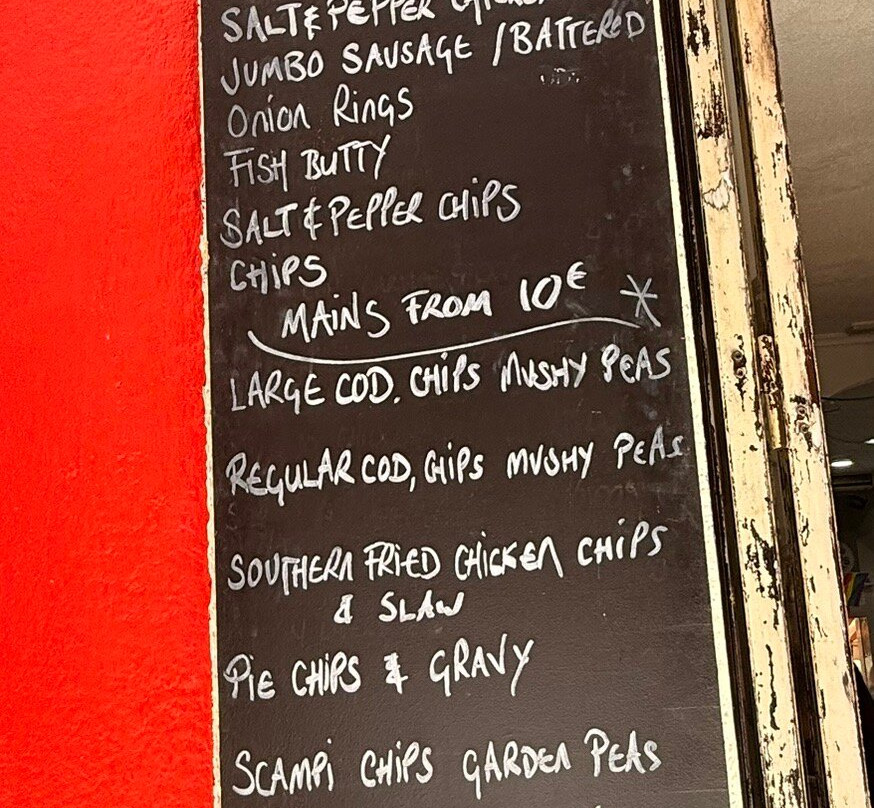 SALT & PEPPER CHICKEN
JUMBO SAUSAGE / BATTERED
Onion Rings
FISH BUTTY
SALT & PEPPER CHIPS
CHIPS
MAINS FROM 10€ *
LARGE COD. CHIPS MUSHY PEAS
REGULAR COD, CHIPS MUSHY PEAS
SOUTHERN FRIED CHICKEN CHIPS
& SLAW
PIE CHIPS & GRAVY
SCAMPI CHIPS GARDEN PEAS